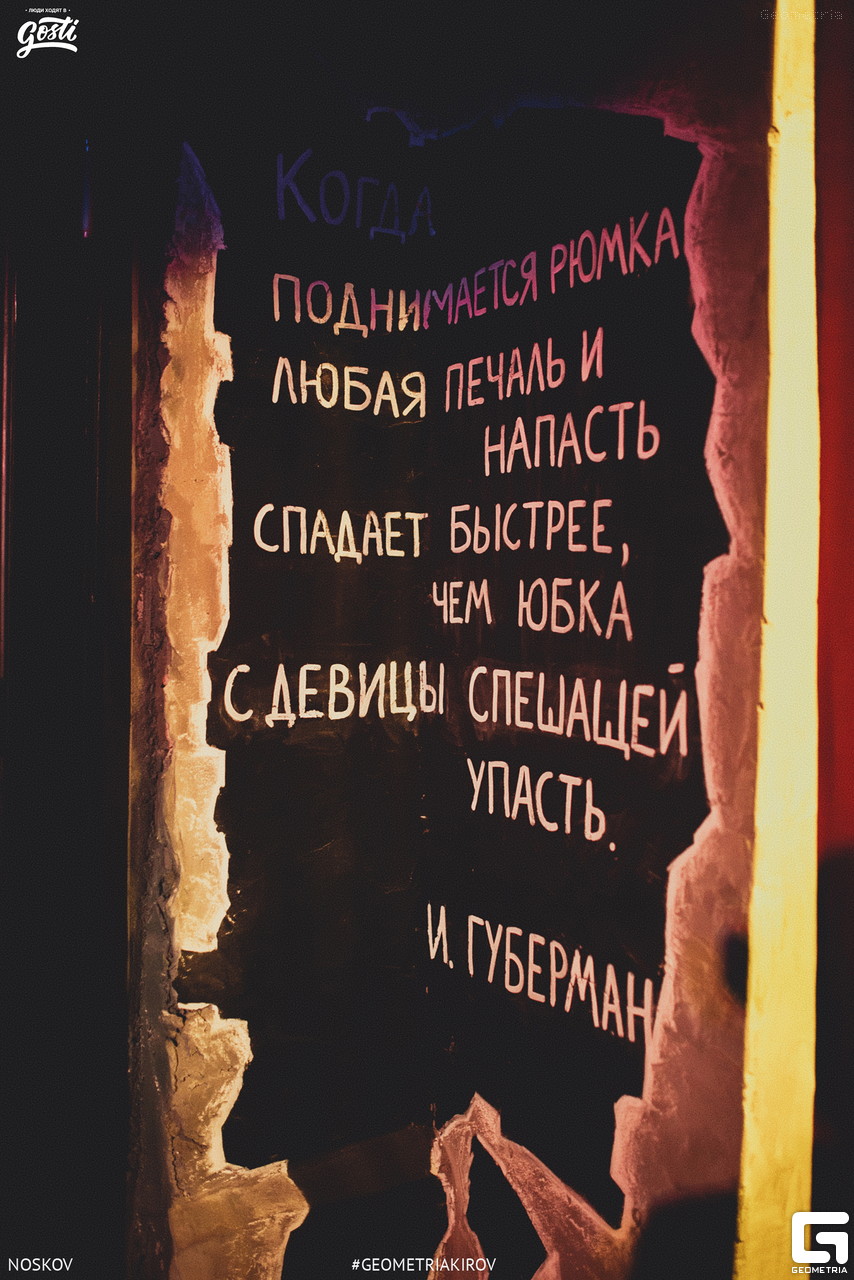 • ЛЮДИ ХОДЯТ В •
Gosti
Geometria
КОГДА
ПОДНИМАЕТСЯ РЮМКА
ЛЮБАЯ ПЕЧАЛЬ И
НАПАСТЬ
СПАДАЕТ БЫСТРЕЕ,
ЧЕМ ЮБКА
С ДЕВИЦЫ СПЕШАЩЕЙ
УПАСТЬ.
И. ГУБЕРМАН
NOSKOV
#GEOMETRIAKIROV
GEOMETRIA